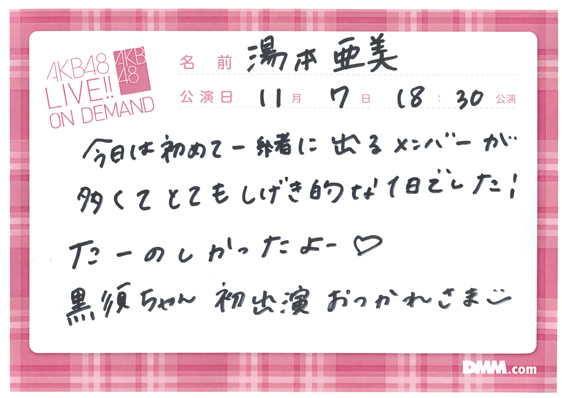 AKB48
LIVE!!
ON DEMAND
AKB
48
名前 湯本亜美
公演日 11月7日 18:30公演
今日は初めて一緒に出るメンバーが
多くてとてもしげき的な1日でした!
たーのしかったよー♡
黒須ちゃん 初出演 おつかれさま
DMM.com